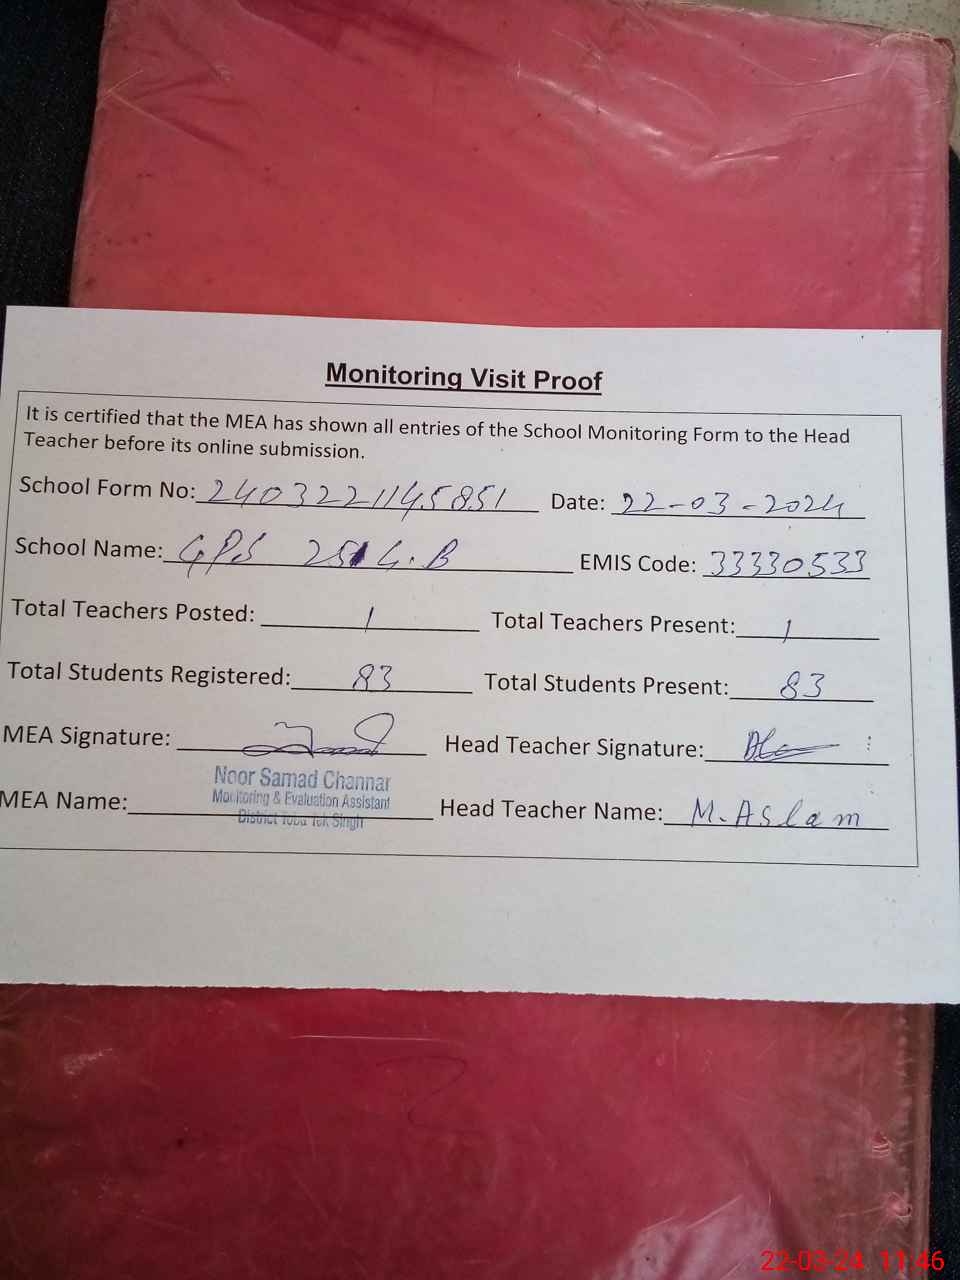 Monitoring Visit Proof
It is certified that the MEA has shown all entries of the School Monitoring Form to the Head
Teacher before its online submission.
School Form No: 2403221145851 Date: 22-03-2024
School Name: GPS 251 G.B EMIS Code: 33330533
Total Teachers Posted: 1 Total Teachers Present: 1
Total Students Registered: 83 Total Students Present: 83
MEA Signature: Head Teacher Signature:
Noor Samad Channar
Monitoring & Evaluation Assistant
District Toba Tek Singh
MEA Name: Head Teacher Name: M. Aslam
22-03-24 11:46